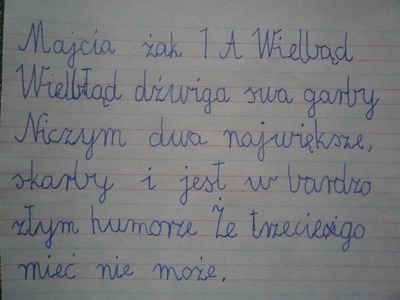 Majcia żak 1 A Wielbąd
Wielbłąd dźwiga swa garby
Niczym dwa największe,
skarby i jest w bardzo
złym humorze Że trzeciego
mieć nie może.